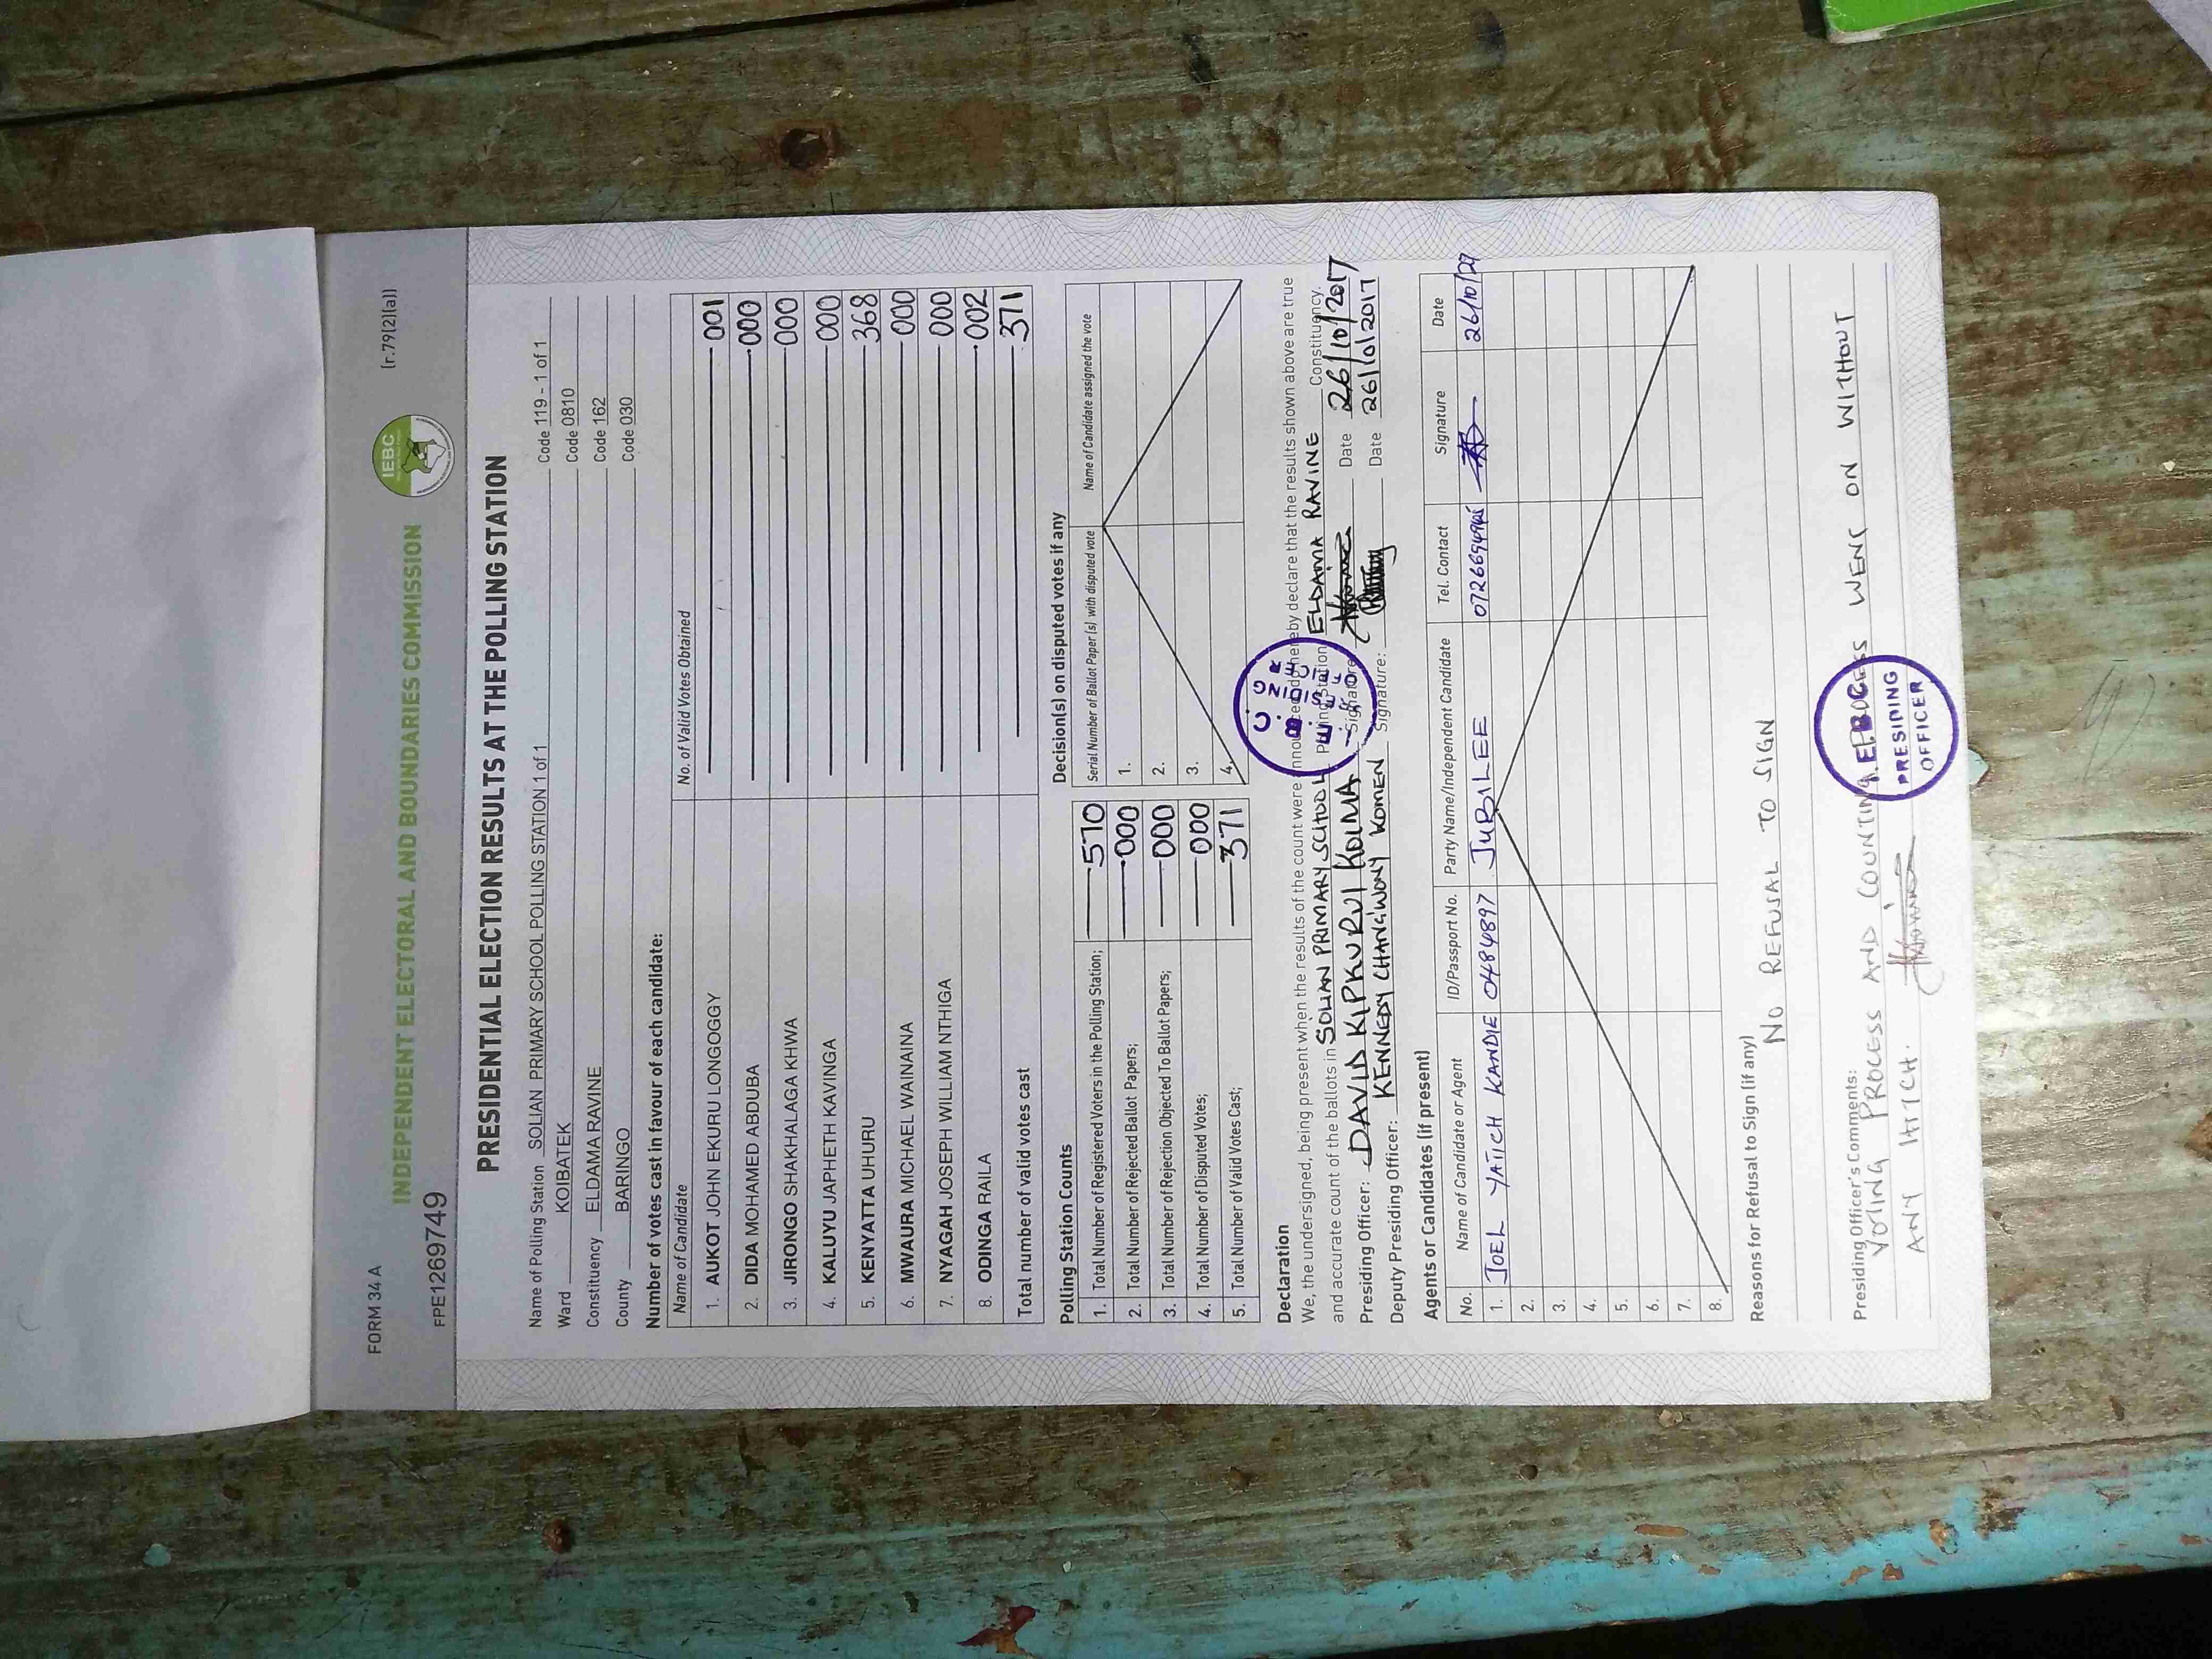 FORM 34 A
[r.79(2)(a)]
IEBC
INDEPENDENT ELECTORAL AND BOUNDARIES COMMISSION
FPE1269749
PRESIDENTIAL ELECTION RESULTS AT THE POLLING STATION
Name of Polling Station SOLIAN PRIMARY SCHOOL POLLING STATION 1 of 1 Code 119 - 1 of 1
Ward KOIBATEK Code 0810
Constituency ELDAMA RAVINE Code 162
County BARINGO Code 030
Number of votes cast in favour of each candidate:
Name of Candidate No. of Valid Votes Obtained
1. AUKOT JOHN EKURU LONGOGGY 001
2. DIDA MOHAMED ABDUBA 000
3. JIRONGO SHAKHALAGA KHWA 000
4. KALUYU JAPHETH KAVINGA 000
5. KENYATTA UHURU 368
6. MWAURA MICHAEL WAINAINA 000
7. NYAGAH JOSEPH WILLIAM NTHIGA 000
8. ODINGA RAILA 002
Total number of valid votes cast 371
Polling Station Counts
1. Total Number of Registered Voters in the Polling Station; 570
2. Total Number of Rejected Ballot Papers; 000
3. Total Number of Rejection Objected To Ballot Papers; 000
4. Total Number of Disputed Votes; 000
5. Total Number of Valid Votes Cast; 371
Decision(s) on disputed votes if any
Serial Number of Ballot Paper (s) with disputed vote Name of Candidate assigned the vote
1.
2.
3.
4.
Declaration
We, the undersigned, being present when the results of the count were announced do hereby declare that the results shown above are true
and accurate count of the ballots in SOLIAN PRIMARY SCHOOL Polling Station ELDAMA RAVINE Constituency.
Presiding Officer: DAVID KIPKURUI KOIMA Signature: Date 26/10/2017
Deputy Presiding Officer: KENNEDY CHANGWONY KOMEN Signature: Date 26/10/2017
I.E.B.C. PRESIDING OFFICER
Agents or Candidates (if present)
No. Name of Candidate or Agent ID/Passport No. Party Name/Independent Candidate Tel. Contact Signature Date
1. JOEL YATICH KANDIE 0484897 JUBILEE 26/10/
2.
3.
4.
5.
6.
7.
8.
Reasons for Refusal to Sign (if any)
NO REFUSAL TO SIGN
Presiding Officer's Comments:
VOTING PROCESS AND COUNTING PROCESS WENT ON WITHOUT
ANY HITCH.
I.E.B.C. PRESIDING OFFICER